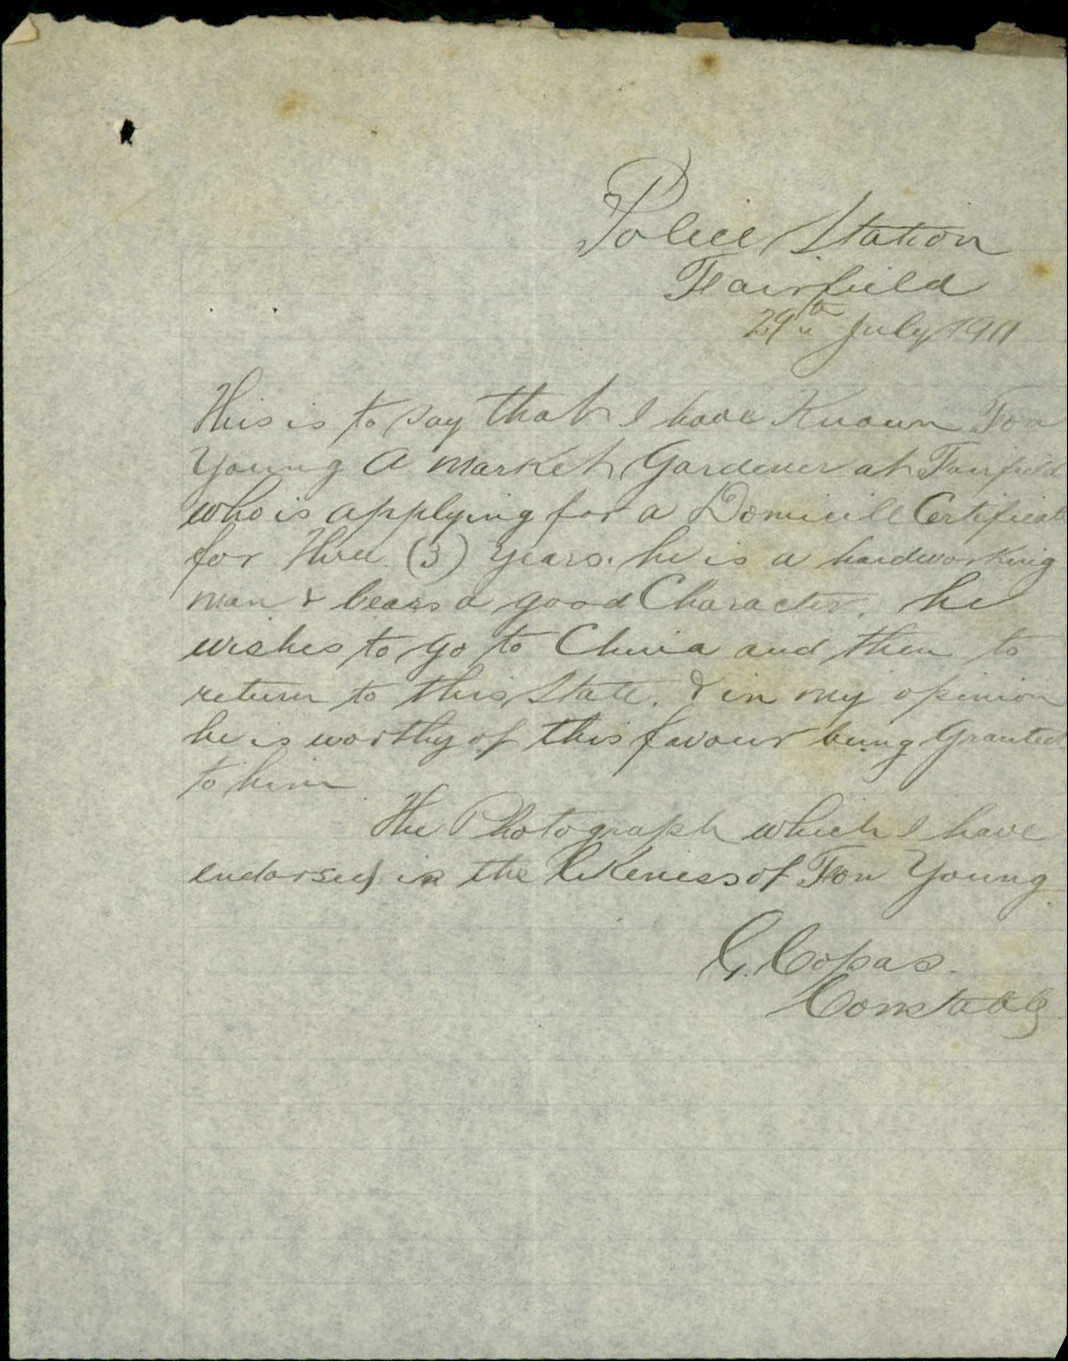 Police Station
Fairfield
29th July 1911
This is to say that I have Known Fon
Young a market Gardener at Fairfield
who is applying for a Domicile Certificate
for three (3) years. he is a hardworking
man & bears a good Character. he
wishes to go to China and then to
return to this State. & in my opinion
he is worthy of this favour being Granted
to him
The Photograph which I have
endorsed is the likeness of Fon Young
G. Copas.
Constable